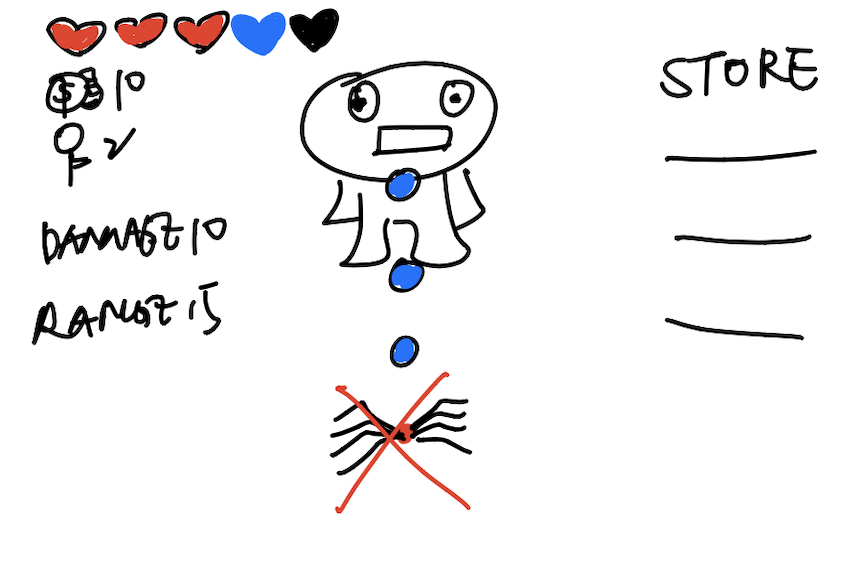 $ 10
2
DAMAGE 10
RANGE 15
STORE